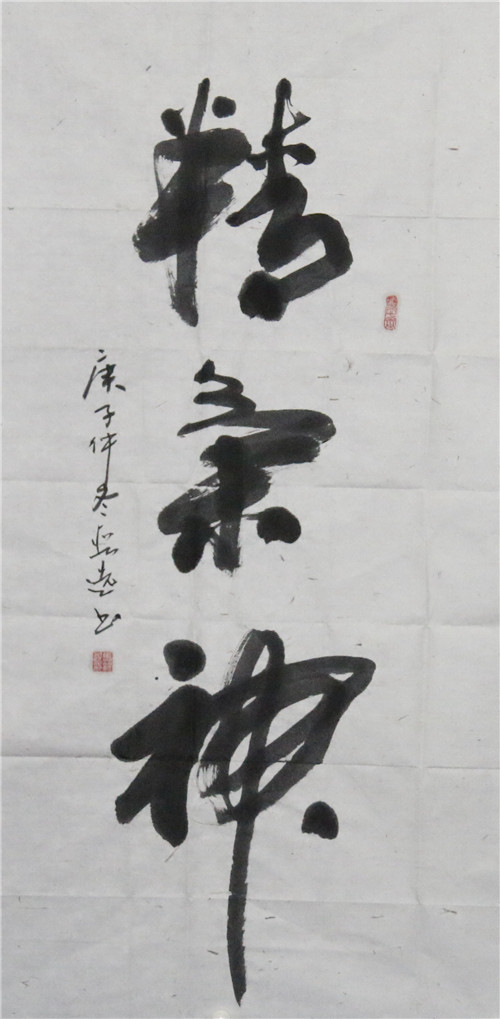 精氣神
庚子仲冬志远书